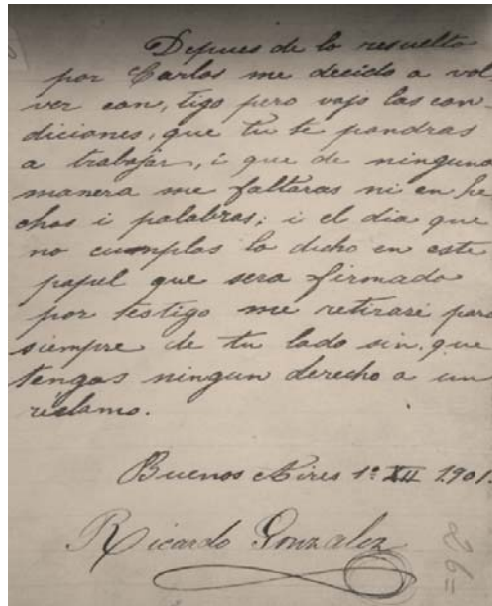 Depues de lo resuelto
por Carlos me decido a vol
ver con, tigo pero vajo las con-
diciones, que tu te pondras
a trabajar, i que de ninguna
manera me faltaras ni en he
chos i palabras; i el dia que
no cumplas lo dicho en este
papel que sera firmado
por testigo me retiraré para
siempre de tu lado sin, que
tengas ningun derecho a un
reclamo.
Buenos Aires 1º XII 1901.
Ricardo Gonzalez
26=